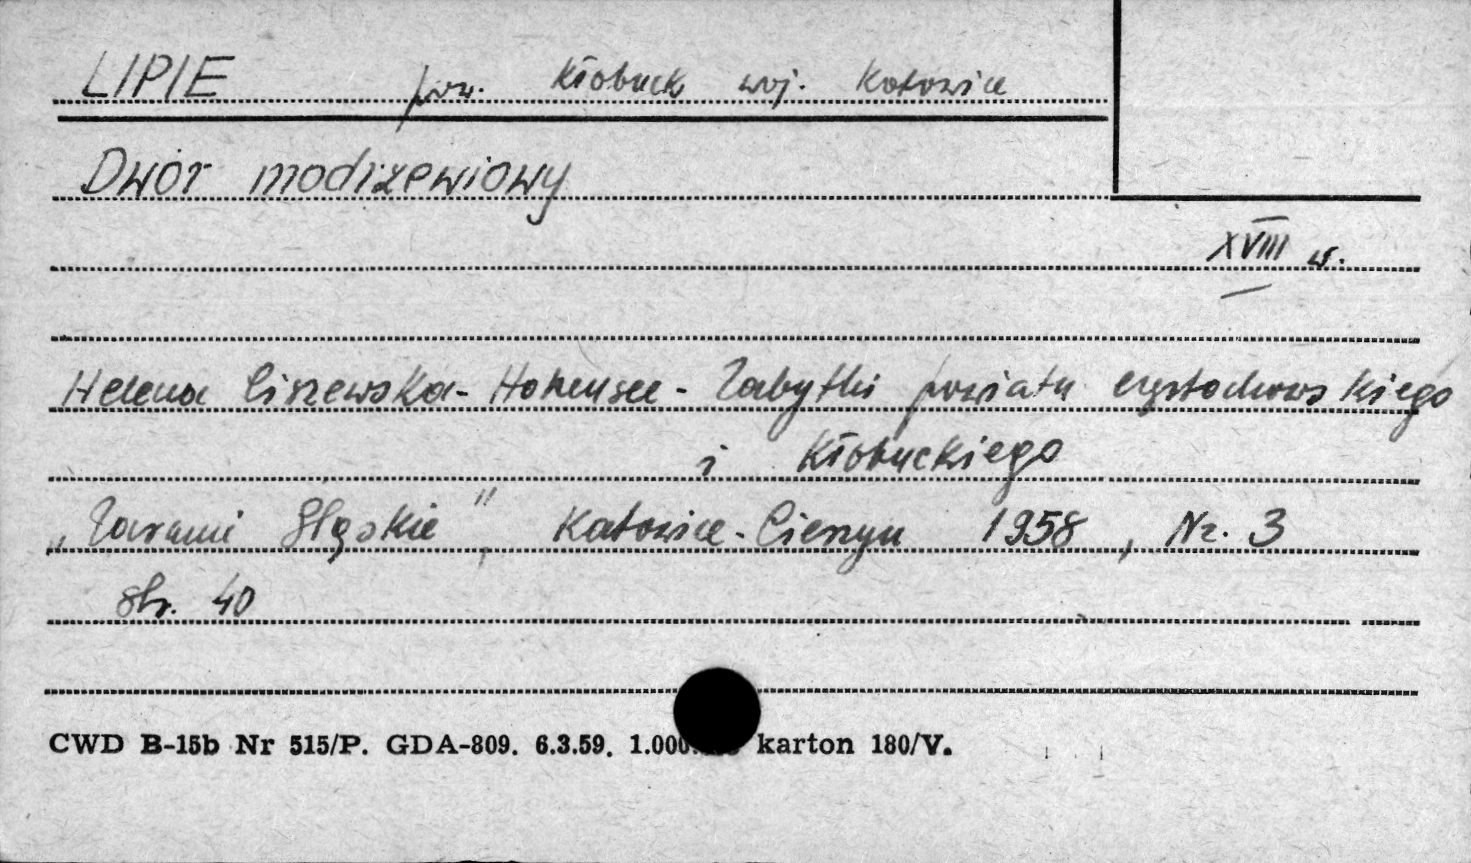 LIPIE pow. Kłobuck woj. Katowice
Dwór modrzewiowy
XVIII w.
Helena Ciszewska-Hohensee - Zabytki powiatu częstochowskiego
i Kłobuckiego
„Zaranie Śląskie", Katowice-Cieszyn 1958, Nr. 3
str. 40
CWD B-15b Nr 515/P. GDA-809. 6.3.59. 1.000 karton 180/V.